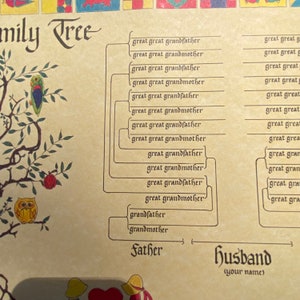 mily Tree
great great grandfather great great
great great grandmother great great
great great grandfather great great
great great grandmother great great
great great grandfather great great
great great grandmother great great
great great grandfather great great
great great grandmother great great
great grandfather great
great grandmother great
great grandfather great
great grandmother great
grandfather
grandmother
Father Husband
(your name)